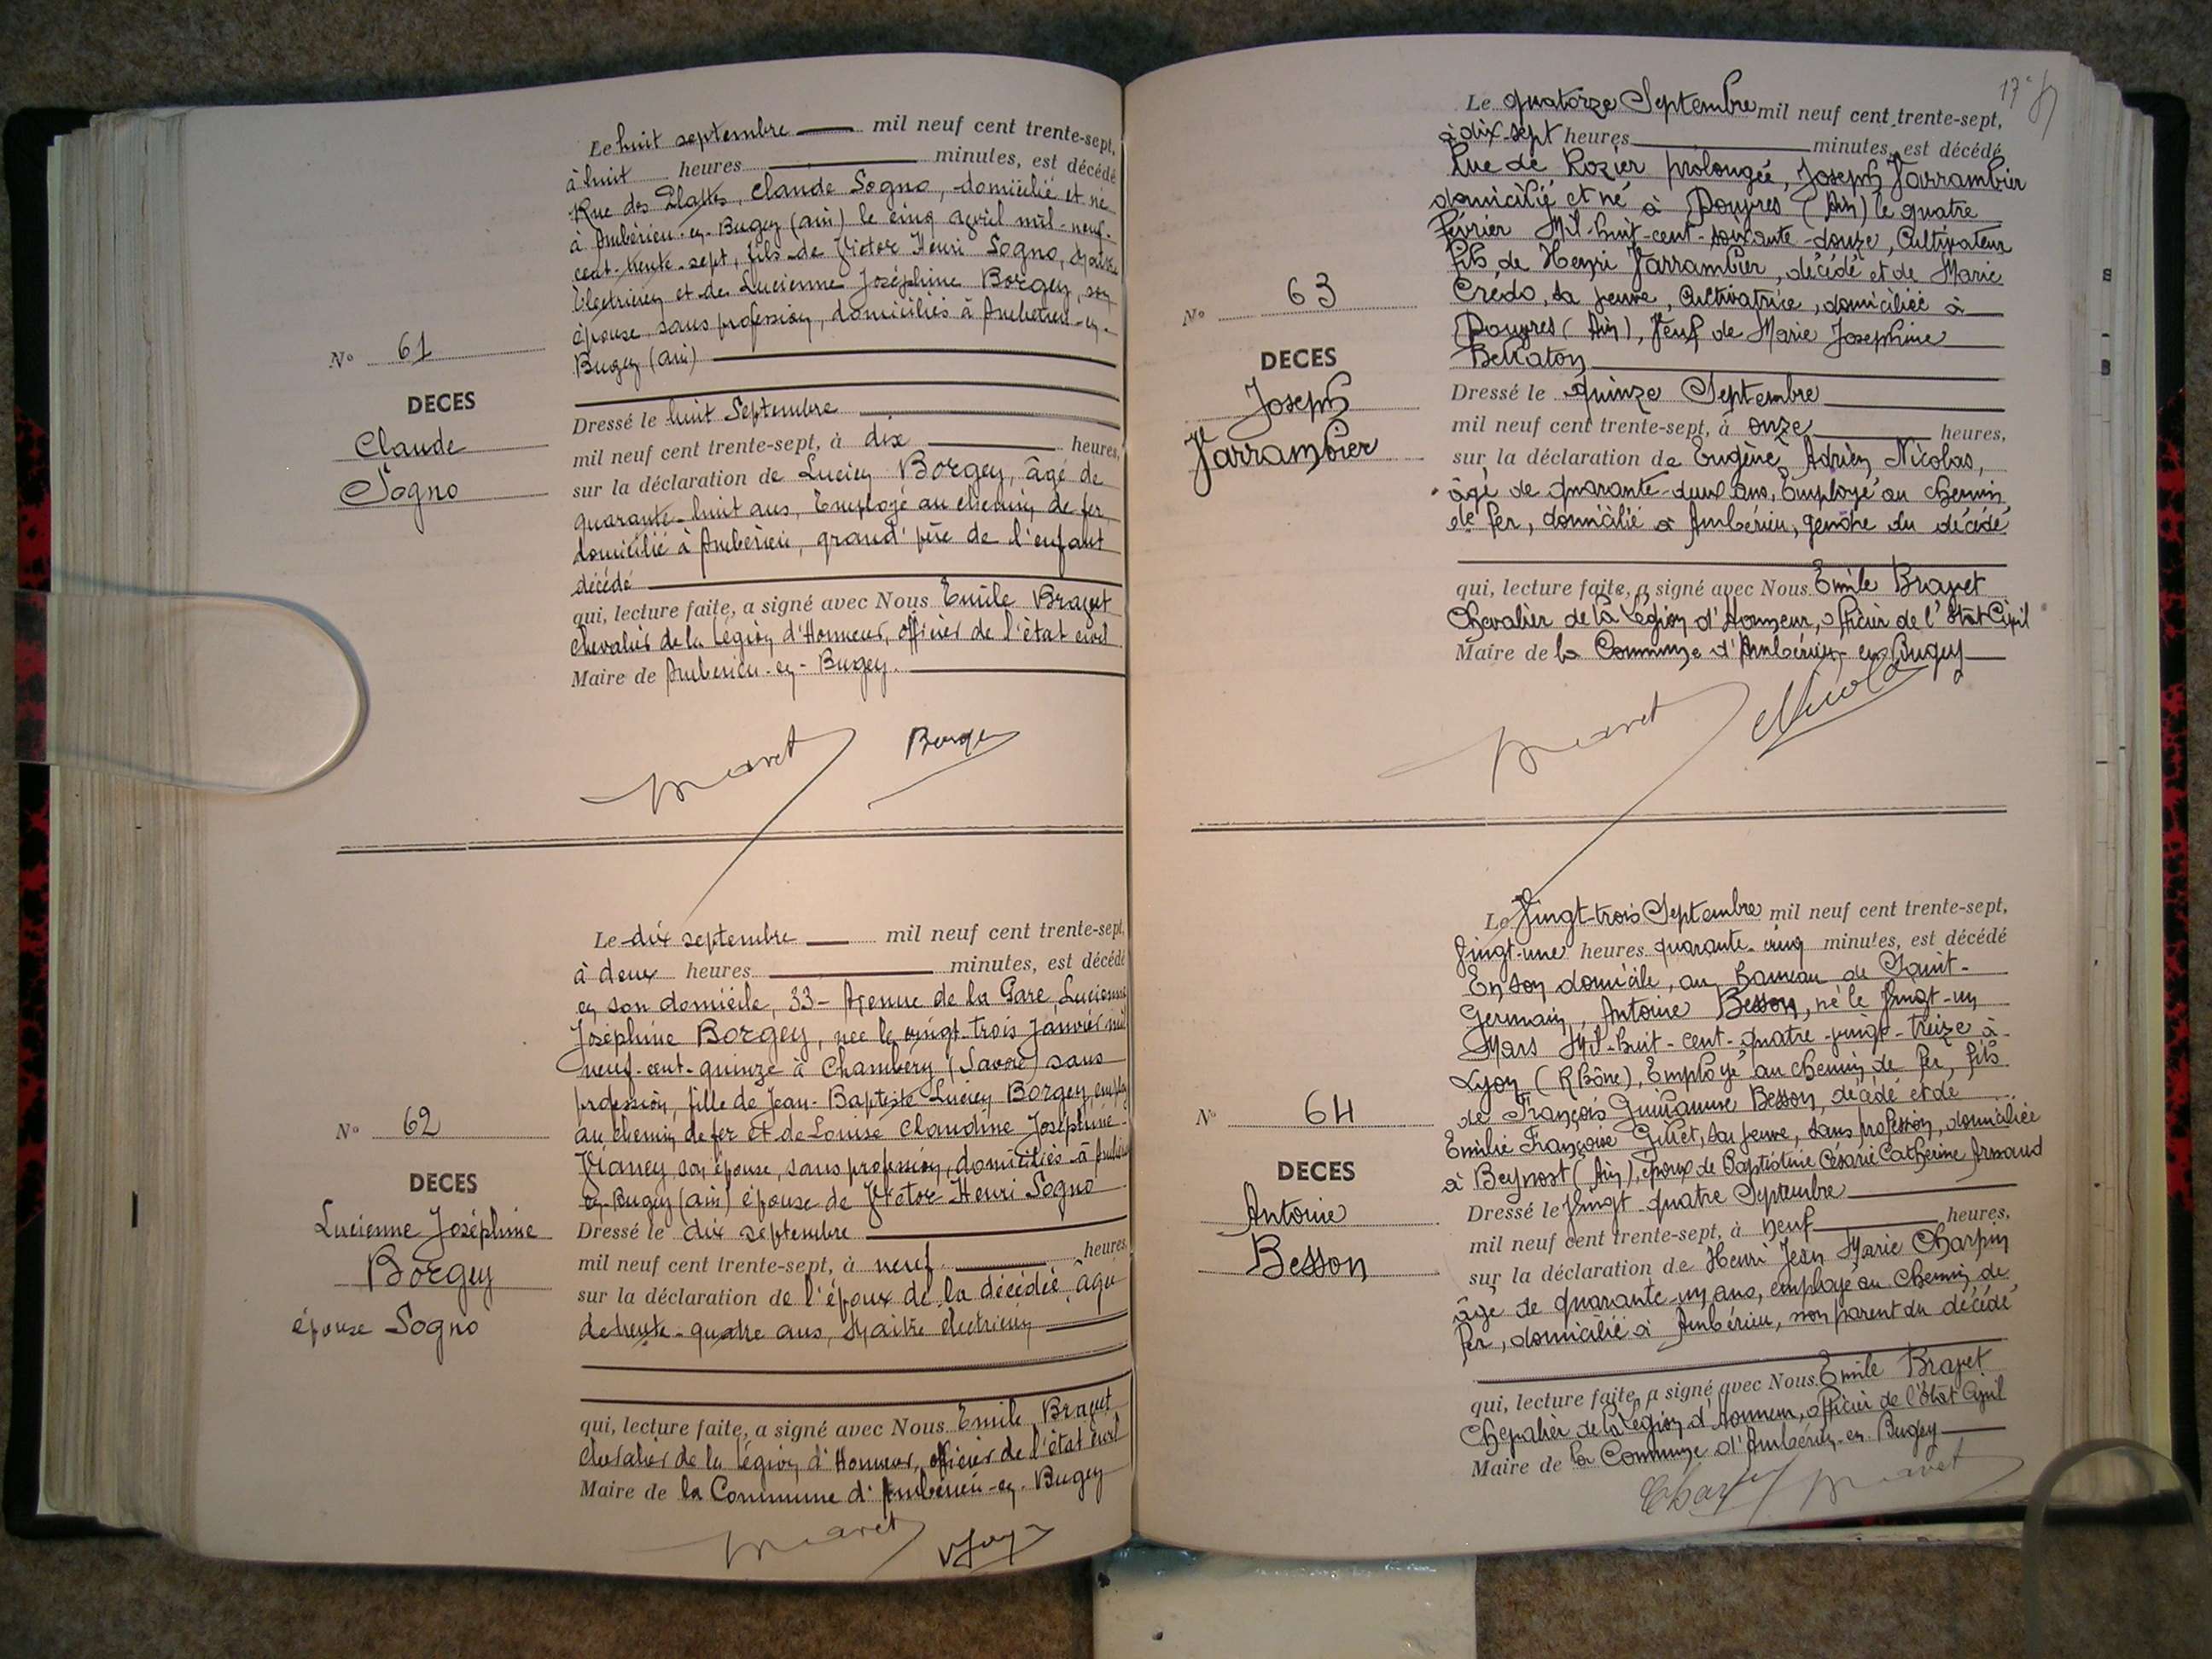 Le huit septembre mil neuf cent trente-sept,
à huit heures minutes, est décédé
Rue des Plattes, Claude Sogno, domicilié et né
à Ambérieu-en-Bugey (ain) le cinq avril mil-neuf-
cent-trente-sept, fils de Victor Henri Sogno, Maître
Electricien et de Lucienne Joséphine Borgey, son
épouse, sans profession, domiciliés à Ambérieu-en-
Bugey (ain)
N° 61
DECES
Claude
Sogno
Dressé le huit Septembre
mil neuf cent trente-sept, à dix heures,
sur la déclaration de Lucien Borgey, âgé de
quarante-huit ans, Employé au chemin de fer
domicilié à Ambérieu, grand'père de l'enfant
décédé
qui, lecture faite, a signé avec Nous Emile Bravet
chevalier de la Légion d'Honneur, officier de l'état civil
Maire de Ambérieu-en-Bugey.
Bravet Borgey
Le dix septembre mil neuf cent trente-sept,
à deux heures minutes, est décédé
en son domicile, 33- Avenue de la Gare, Lucienne
Joséphine Borgey, née le vingt-trois Janvier mil
neuf-cent-quinze à Chambéry (Savoie) sans
profession, fille de Jean-Baptiste Lucien Borgey, employé
au chemin de fer et de Louise Claudine Joséphine
Vianey, son épouse, sans profession, domiciliés à Ambérieu
en-Bugey (ain) épouse de Victor Henri Sogno
N° 62
DECES
Lucienne Joséphine
Borgey
épouse Sogno
Dressé le dix septembre
mil neuf cent trente-sept, à neuf heures
sur la déclaration de l'époux de la décédée, âgé
de trente-quatre ans, Maître électricien
qui, lecture faite, a signé avec Nous Emile Bravet
chevalier de la Légion d'Honneur, officier de l'état civil
Maire de la Commune d'Ambérieu-en-Bugey
Bravet
17
Le quatorze Septembre mil neuf cent trente-sept,
à dix-sept heures minutes, est décédé
Rue de Rozier prolongée, Joseph Varrambier
domicilié et né à Douvres (Ain) le quatre
Février Mil-huit-cent-soixante-douze, Cultivateur
fils de Henri Varrambier, décédé et de Marie
Credo, sa veuve, Cultivatrice, domiciliée à
Douvres (Ain), Veuf de Marie Josephine
Bellaton
N° 63
DECES
Joseph
Varrambier
Dressé le quinze Septembre
mil neuf cent trente-sept, à onze heures,
sur la déclaration de Eugène Adrien Nicolas,
âgé de quarante-deux ans, Employé au chemin
de fer, domicilié à Ambérieu, gendre du décédé
qui, lecture faite, a signé avec Nous Emile Bravet
Chevalier de la Légion d'Honneur, officier de l'état Civil
Maire de la Commune d'Ambérieu-en-Bugey
Bravet Nicolas
Le Vingt-trois Septembre mil neuf cent trente-sept,
Vingt-une heures quarante-cinq minutes, est décédé
En son domicile, au hameau de Saint-
Germain, Antoine Besson, né le Vingt-un
Mars Mil-huit-cent-quatre-vingt-treize à
Lyon (Rhône), Employé au chemin de fer, fils
de François Guillaume Besson, décédé et de
Emilie Françoise Gillet, sa veuve, sans profession, domiciliée
à Beynost (Ain), époux de Baptistine Césarie Catherine Arnaud
N° 64
DECES
Antoine
Besson
Dressé le Vingt-quatre Septembre
mil neuf cent trente-sept, à Neuf heures,
sur la déclaration de Henri Jean Marie Charpin
âgé de quarante-un ans, employé au chemin de
fer, domicilié à Ambérieu, non parent du décédé
qui, lecture faite, a signé avec Nous Emile Bravet
Chevalier de la Légion d'Honneur, officier de l'état Civil
Maire de la Commune d'Ambérieu-en-Bugey
Bravet